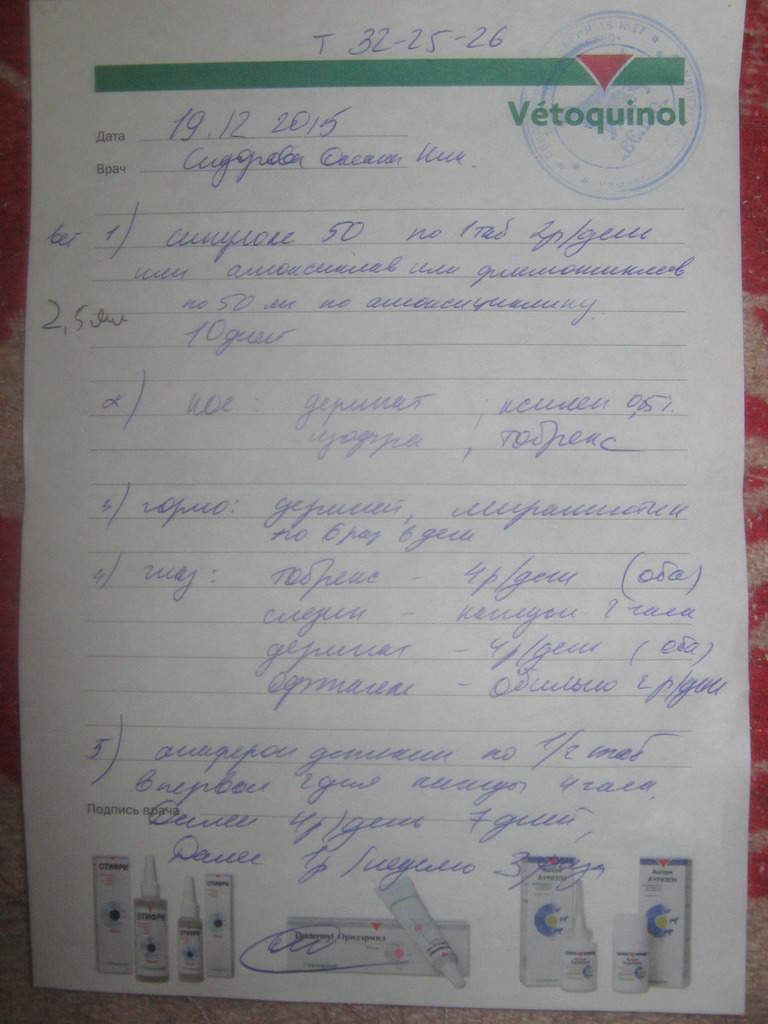 т 32-25-26
Vétoquinol
Дата 19.12 2015
Врач Сидорова Оксана Ник.
вет 1) синулокс 50 по 1 таб 2р/день
или амоксиклав или флемоксиклав
2,5 мл по 50 мг по амоксициллину.
10 дней
2) нос: деринат, ксилен 0,05%.
ципрофри, тобрекс
3) горло: деринат, мирамистин
по 6 раз в день
4) глаз: тобрекс - 4р/день (оба)
- каждые 2 часа
деринат - 4р/день (оба)
офтагель - обильно 2р/день
5) анаферон детский по 1/2 таб
в первые 2 дня каждые 4 часа,
Подпись врача Далее 4р/день 7 дней,
Далее 1р/неделю 3 раза
ОТИФРИ
ОТИФРИ
ОТИФРИ
Oridermyl Оридермил
Aurizon АУРИЗОН
Aurizon АУРИЗОН